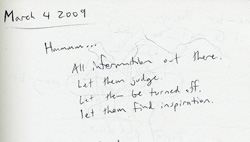 March 4 2009
Hummmm...
All information out there.
Let them judge.
Let them be turned off.
let them find inspiration.